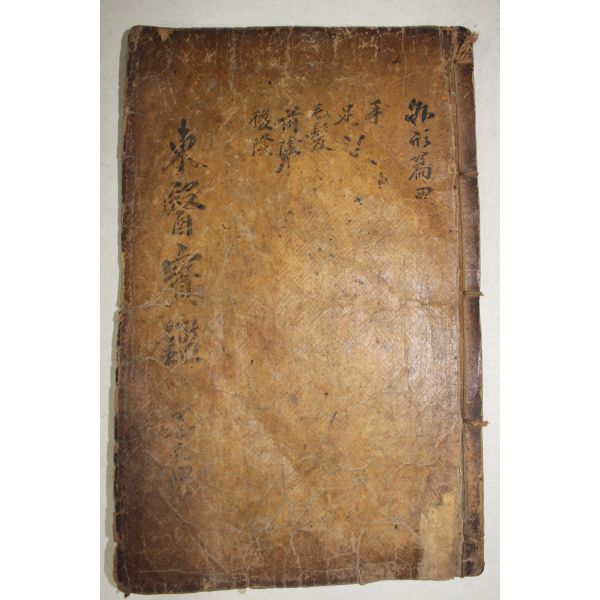 外形篇四
手
足
毛髮
前陰
後陰
東醫寶鑑 卷之四